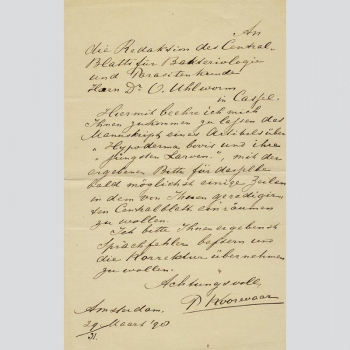 An
die Redaktion des Central-
Blatts für Bakteriologie
und Parasitenkunde
Herrn Dr O. Uhlworm
in Cassel.
Hiermit beehre ich mich
Ihnen zukommen zu lassen das
Manuskript eines Artikels über
„Hypoderma bovis und ihre
jüngsten Larven", mit der
ergebenen Bitte für dasselbe
bald möglichst einige Zeilen
in dem von Ihnen
Centralblatt einräumen
zu wollen.
Ich bitte Ihnen ergebenst
Sprachfehler bessern und
die Korrektur übernehmen
zu wollen.
Achtungsvoll,
P. Koorevaar
Amsterdam,
Maart '98